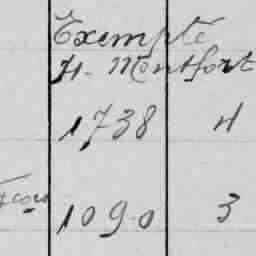 Exempte
H. Montfort
1738 4
1090 3